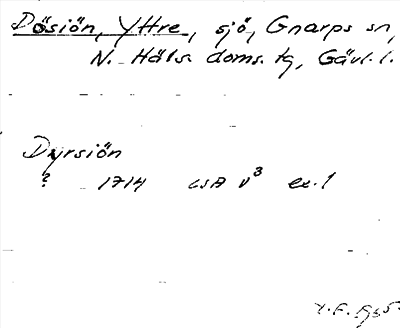 Dösiön, Yttre, sjö, Gnarps sn,
N. Häls. doms. tg, Gävl. l.
Dyrsiön
? 1714 LSA v³ ex. 1